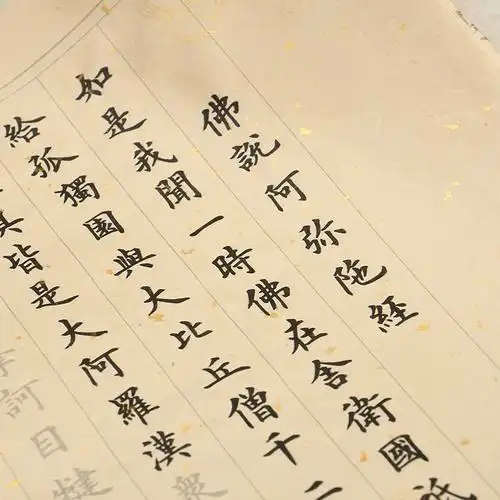 佛說阿弥陁経
如是我聞一時佛在舍衛國祇
給孤獨園與大比丘僧千二
皆是大阿羅漢衆
訶目犍